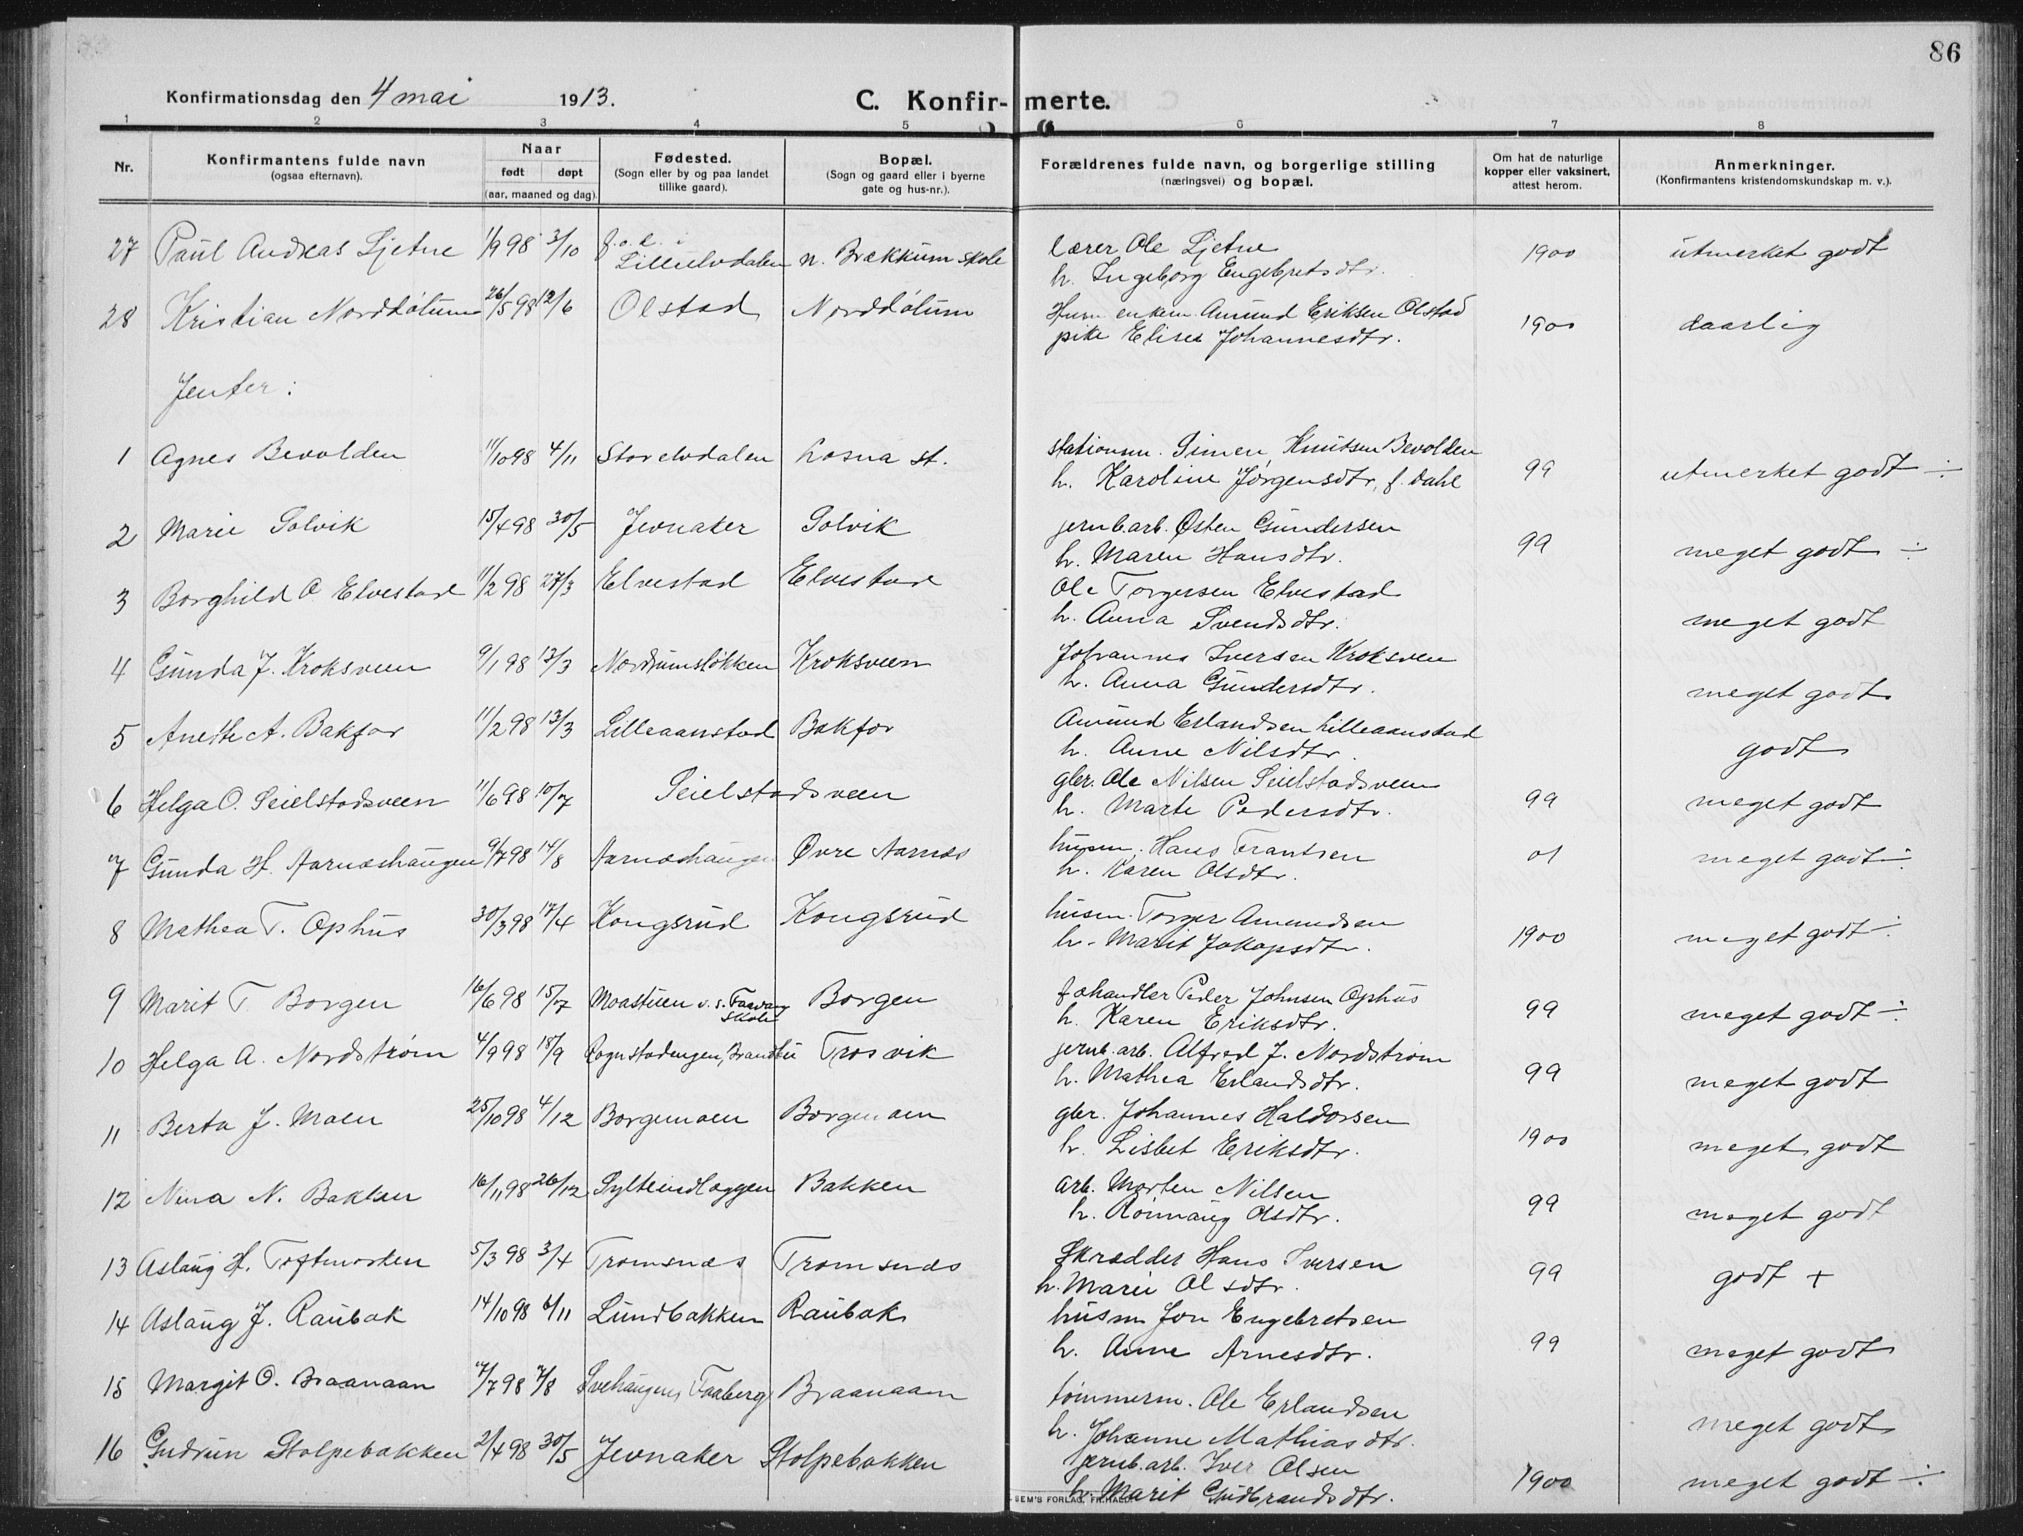 86
Konfirmationsdag den 4 mai 1913. C. Konfir- merte.
1 2 3 4 5 6 7 8
Nr. Konfirmantens fulde navn (ogsaa efternavn). Naar født døpt (aar, maaned og dag) Fødested. (Sogn eller by og paa landet tillike gaard). Bopæl. (Sogn og gaard eller i byerne gate og hus-nr.). Forældrenes fulde navn, og borgerlige stilling (næringsvei) og bopæl. Om hat de naturlige kopper eller vaksinert, attest herom. Anmerkninger. (Konfirmantens kristendomskundskap m. v.).
27 Paul Andreas Sjetne 1/9 98 3/10 Lilleelvdalen n. Brækkum skole lærer Ole Sjetne 1900 utmerket godt
h. Ingeborg Engebretsdtr.
28 Kristian Norddølum 26/5 98 12/6 Olstad Norddølum enkem. Amund Eriksen Olstad 1900 daarlig
pike Elise Johannesdtr.
Jenter:
1 Agnes Bevolden 11/10 98 4/11 Storelvdalen Losna st. stationsm. Simen Knutsen Bevolden 99 utmerket godt ÷
h. Karoline Jørgensdtr. f. Dahl
2 Marie Solvik 15/4 98 30/5 Jevnaker Solvik jernb.arb. Østen Gundersen 99 meget godt ÷
h. Maren Hansdtr.
3 Borghild O Elvestad 11/2 98 27/3 Elvestad Elvestad Ole Torgersen Elvestad meget godt
h. Anna Svendsdtr.
4 Gunda J. Kroksveen 9/1 98 13/3 Nordrumsløkken Kroksveen Johannes Iversen Kroksveen meget godt
h. Anna Gundersdtr.
5 Anethe A. Bakfor 11/2 98 13/3 Lilleaanstad Bakfor Amund Erlandsen Lilleaanstad godt
h. Anne Nilsdtr.
6 Helga O. Seielstadsveen 11/6 98 10/7 Seielstadsveen gbr. Ole Nilsen Seielstadsveen 99 meget godt
h. Marte Pedersdtr.
7 Gunda H. Aarnæshaugen 9/7 98 14/8 Aarnæshaugen Øvre Aarnæs husm. Hans Frantsen 01 meget godt ÷
h. Karen Olsdtr.
8 Mathea T. Ophus 30/3 98 17/4 Kongsrud Kongsrud husm. Torger Amundsen 1900 meget godt ÷
h. Marit Jakopsdtr.
9 Marit T. Borgen 16/6 98 15/7 Moastuen v. s. Faavang skole Borgen fehandler Peder Johnsen Ophus 99 meget godt ÷
h. Karen Eriksdtr.
10 Helga A. Nordstrøm 4/9 98 18/9 Rognstadengen, Brandbu Trosvik jernb. arb. Alfred J. Nordstrøm 99 meget godt
h. Mathea Erlandsdtr.
11 Berta J. Moen 25/10 98 4/12 Borgemoen Borgemoen gbr. Johannes Haldorsen 1900 meget godt
h. Lisbet Eriksdtr.
12 Nina N. Bakken 16/11 98 26/12 Sylteindlæggen Bakken arb. Morten Nilsen 99 meget godt
h. Rønnaug Olsdtr.
13 Aslaug H. Toftmorken 5/3 98 3/4 Tromsnæs Tromsnæs Skrædder Hans Iversen 99 godt +
h. Marie Olsdtr.
14 Aslaug J. Raubak 14/10 98 6/11 Lundbakken Raubak husm Jon Engebretsen 99 meget godt
h. Anne Arnesdtr.
15 Margit O. Braanaan 7/7 98 7/8 Svehaugen, Faaberg Braanaan tømmerm. Ole Erlandsen meget godt
h. Johanne Mathiasdtr.
16 Gudrun Stolpebakken 2/4 98 30/5 Jevnaker Stolpebakken jernb.arb. Iver Olsen 1900 meget godt ÷
h. Marit Gudbrandsdtr.
SEM'S FORLAG, FR.HALD